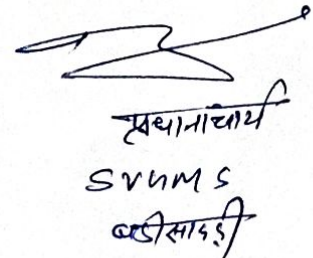 प्रधानाचार्य
SVHMS
बडीसादड़ी